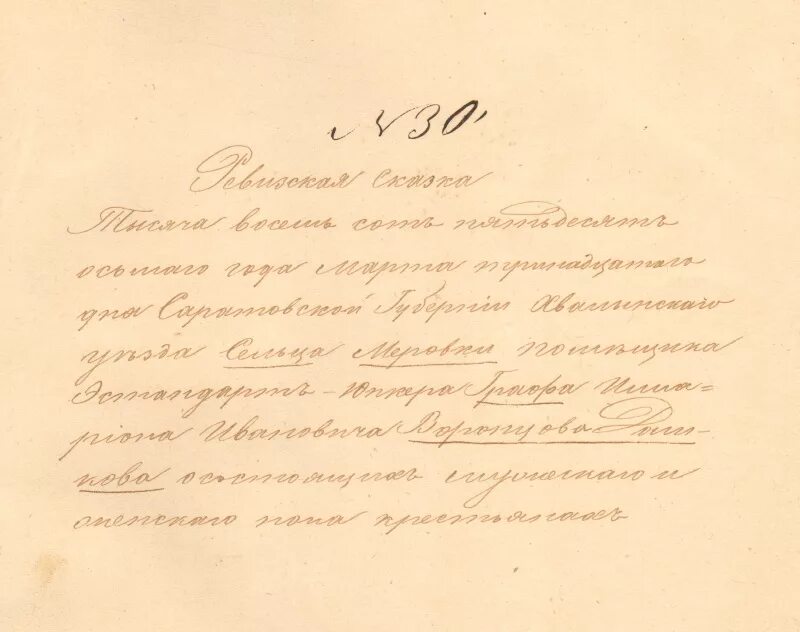 № 30,
Ревизская сказка
Тысяча восемь сотъ пятьдесятъ
осьмаго года Марта тринадцатого
дня Саратовской Губерніи Хвалынскаго
уѣзда Сельца Меровки помѣщика
Эстандартъ-Юнкера Графа Илла-
ріона Ивановича Воронцова Даш-
кова осостоящихъ мужескаго и
женскаго пола крестьянахъ